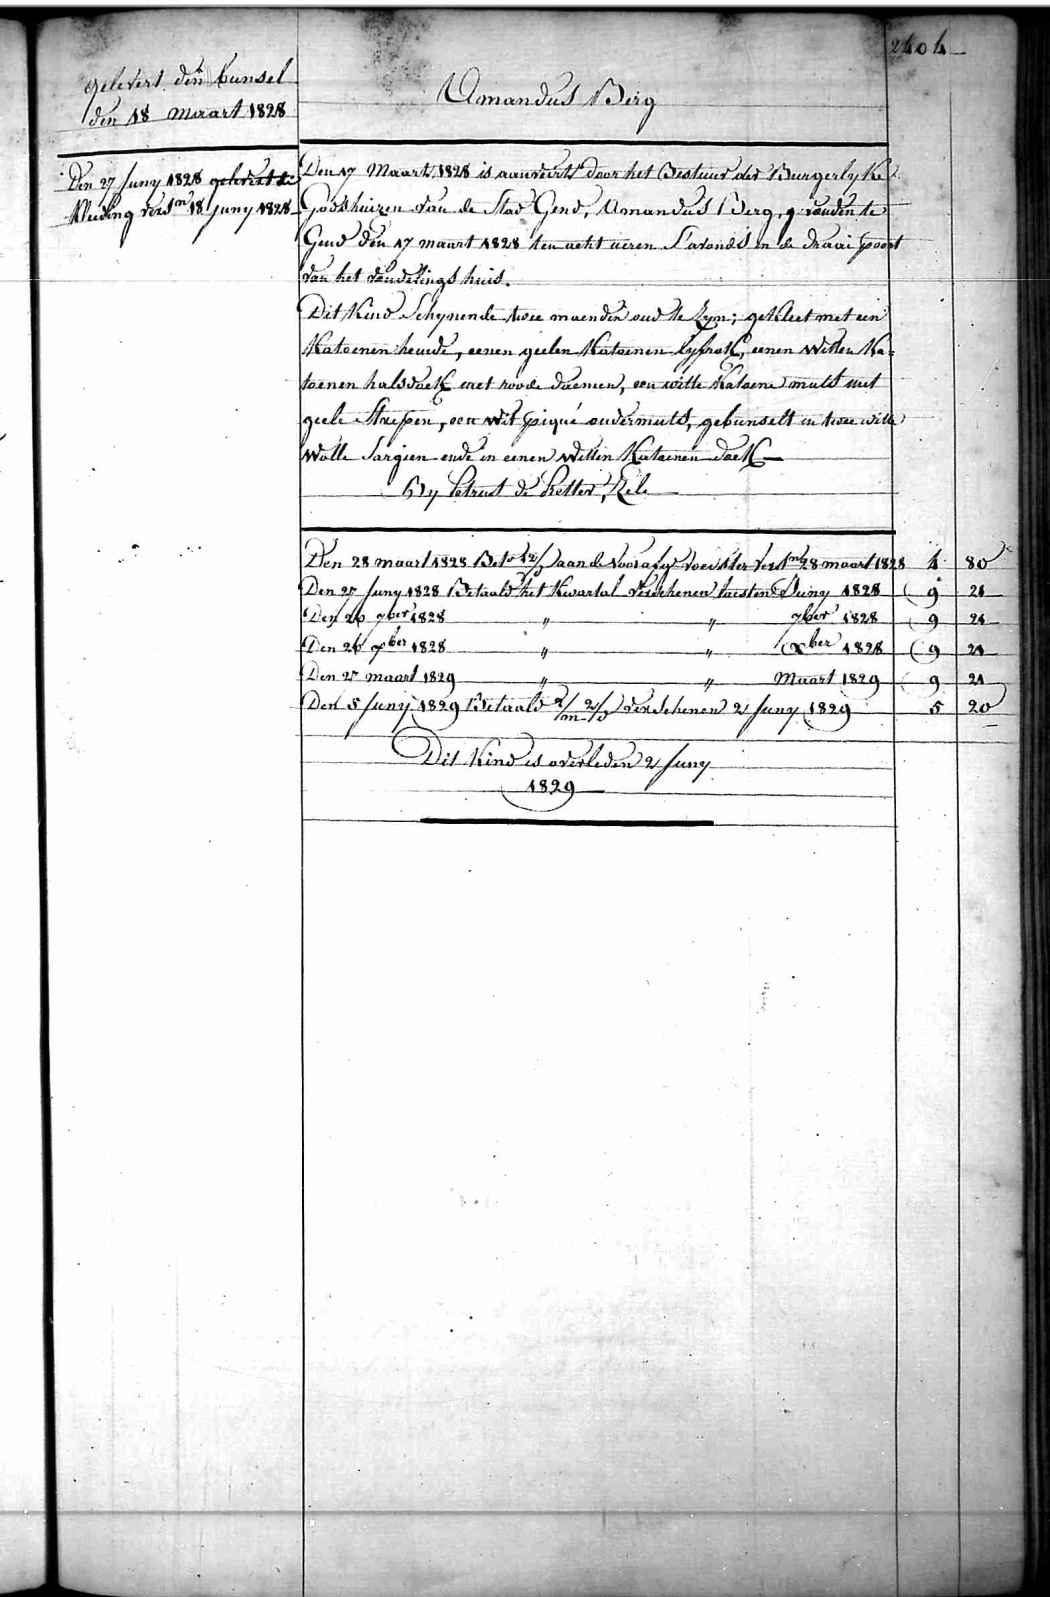 2404
gelevert den bunsel
den 18 maart 1828
Amandus Berg
Den 27 Juny 1828 gelevert de
kleeding vers.m 18 Juny 1828
Den 17 Maart 1828 is aanveert door het Bestuur der Burgerlyke
Godshuizen van de Stad Gend, Amandus Berg, gevonden te
Gend den 17 maart 1828 ten acht uren s'avonds in de draai poort
van het vondelings huis.
Dit Kind Schynende twee maenden oud te Zyn; gekleet met een
Katoenen hemde, eenen geelen Katoenen lyfrok, eenen Witten Ka=
toenen halsdoek met roode bloemen, een witte Katoene muts met
geele Streepen, een wit piqué ondermuts, gebunselt in twee witte
Wolle Sargien ende in eenen Witten Katoenen doek
By Petrus de Ketter, Zele
Den 28 maart 1828 Bet. 12/ aan de voorafg. voedster vers.m 28 maart 1828 4 80
Den 27 Juny 1828 Betaald het Kwartal verschenen laesten Juny 1828 9 21
Den 26 7ber 1828 " " 7ber 1828 9 21
Den 26 xber 1828 " " xber 1828 9 21
Den 27 maart 1829 " " Maart 1829 9 21
Den 5 Juny 1829 Betaald 2/m 2/d verschenen 2 Juny 1829 5 20
Dit Kind is overleden 2 Juny
1829